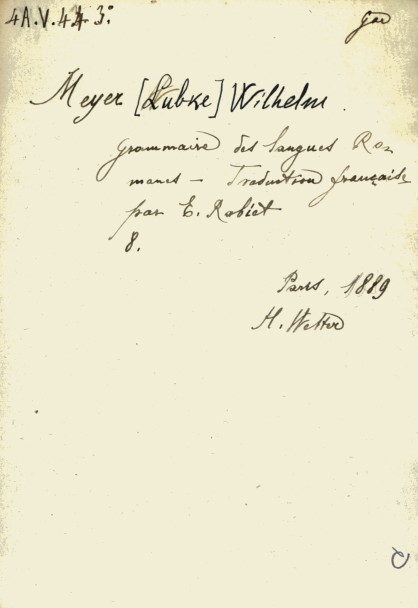 4A.V.44 3º
Meyer [Lubke] Wilhelm.
Grammaire des langues Ro-
manes – Traduction française
par E. Rabiet
8.
Paris, 1889
H. Welter